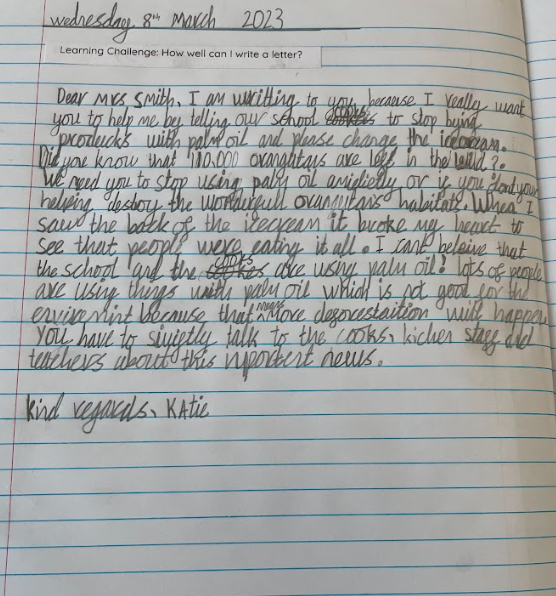 wednesday 8th March 2023
Learning Challenge: How well can I write a letter?
Dear Mrs Smith, I am writting to you, because I really want
you to help me by telling our school cooks to stop bying
producks with palm oil and please change the icecream.
Did you know that 100,000 orangutans are left in the wild?
We need you to stop using palm oil or if you dont your
helping destroy the wonderfull habitats. When I
saw the back of the icecream it broke my heart to
see that people were eating it all. I cant beleive that
the school and the cooks are using palm oil! lots of people
are using things with palm oil which is not good for the
because that means more deforestaition will happen
you have to talk to the cooks, kichen staff and
teachers about this inportent news.
kind regards, KAtie